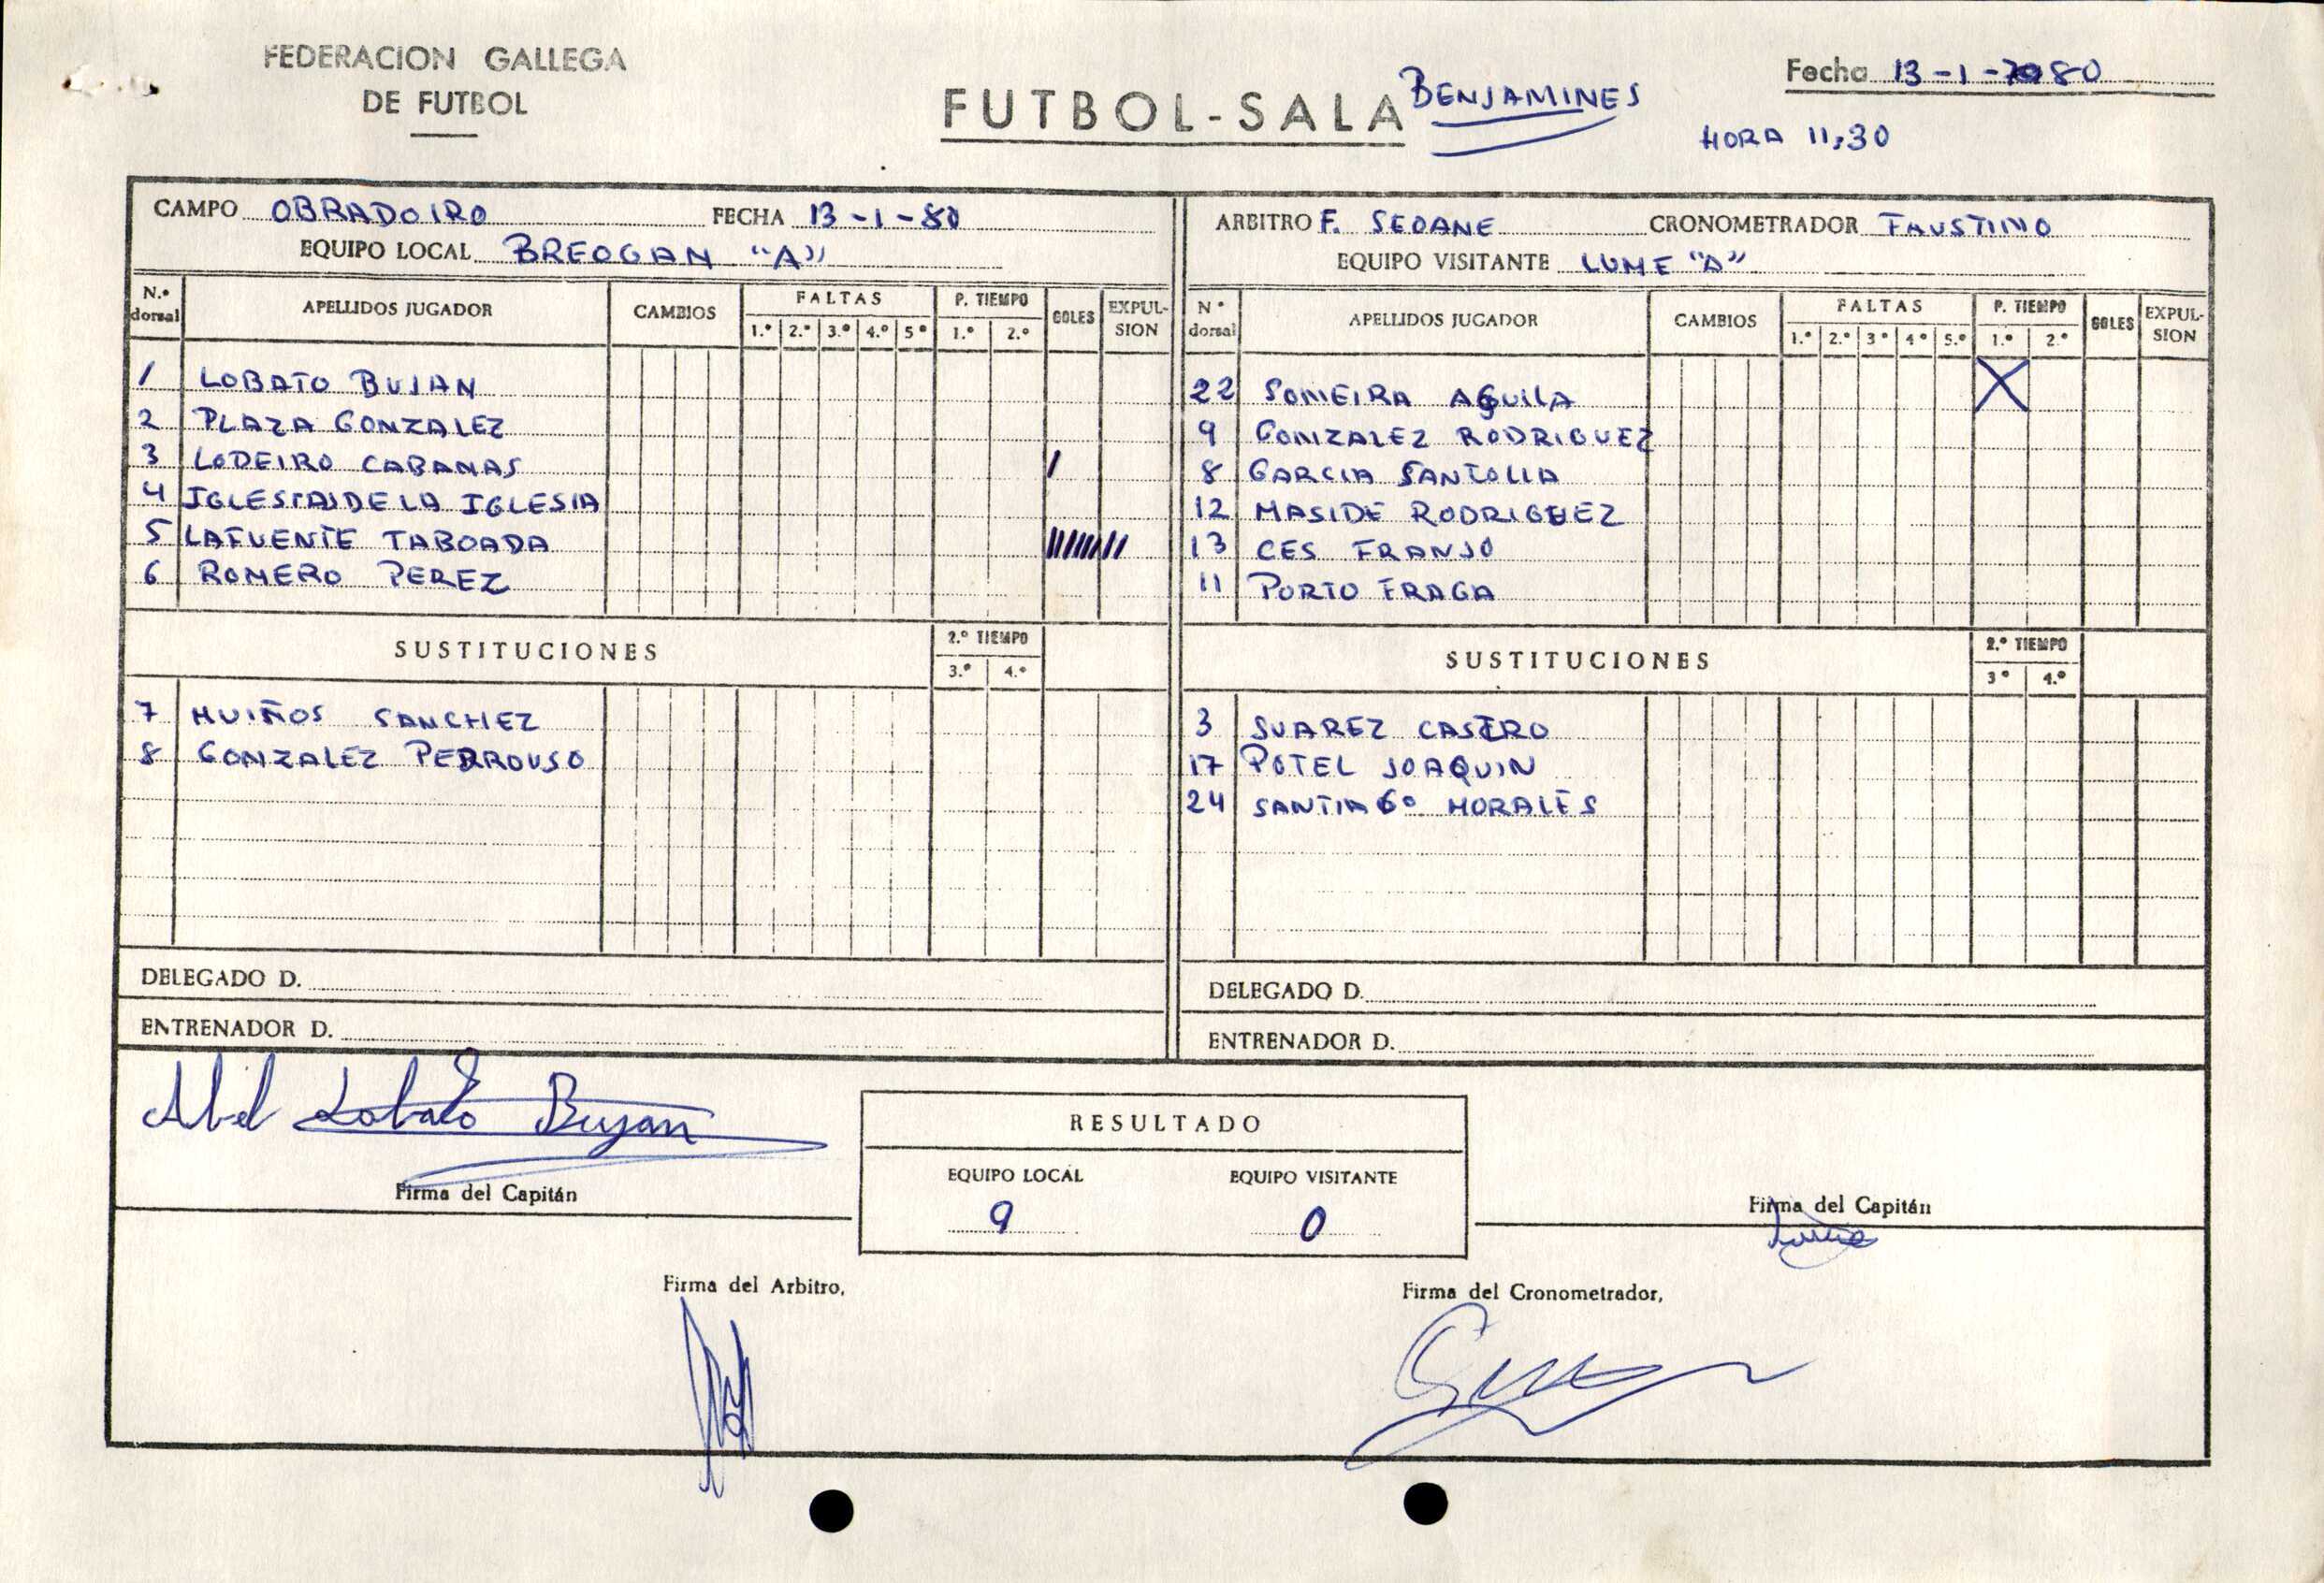 FEDERACION GALLEGA
DE FUTBOL
FUTBOL-SALA BENJAMINES
Fecha 13-1-80
HORA 11,30
CAMPO OBRADOIRO FECHA 13-1-80
EQUIPO LOCAL BREOGAN "A"
N.º dorsal APELLIDOS JUGADOR CAMBIOS FALTAS 1.º 2.º 3.º 4.º 5º P. TIEMPO 1.º 2.º GOLES EXPULSION
1 LOBATO BUJAN
2 PLAZA GONZALEZ
3 LODEIRO CABANAS /
4 IGLESIAS DE LA IGLESIA
5 LAFUENTE TABOADA ////////
6 ROMERO PEREZ
SUSTITUCIONES 2.º TIEMPO 3.º 4.º
7 MUIÑOS SANCHEZ
8 GONZALEZ PEDROUSO
DELEGADO D.
ENTRENADOR D.
ARBITRO F. SEOANE CRONOMETRADOR FAUSTINO
EQUIPO VISITANTE LUME "A"
Nº dorsal APELLIDOS JUGADOR CAMBIOS FALTAS 1.º 2.º 3º 4º 5.º P. TIEMPO 1.º 2.º GOLES EXPULSION
22 SOMEIRA AGUILA X
9 GONZALEZ RODRIGUEZ
8 GARCIA SANTOLLA
12 MASIDE RODRIGUEZ
13 CES FRANJO
11 PORTO FRAGA
SUSTITUCIONES 2.º TIEMPO 3º 4.º
3 SUAREZ CASTRO
17 POTEL JOAQUIN
24 SANTIAGO MORALES
DELEGADO D.
ENTRENADOR D.
Abel Lobato Bujan
Firma del Capitán
RESULTADO
EQUIPO LOCAL EQUIPO VISITANTE
9 0
Firma del Capitán
Firma del Arbitro,
Firma del Cronometrador,